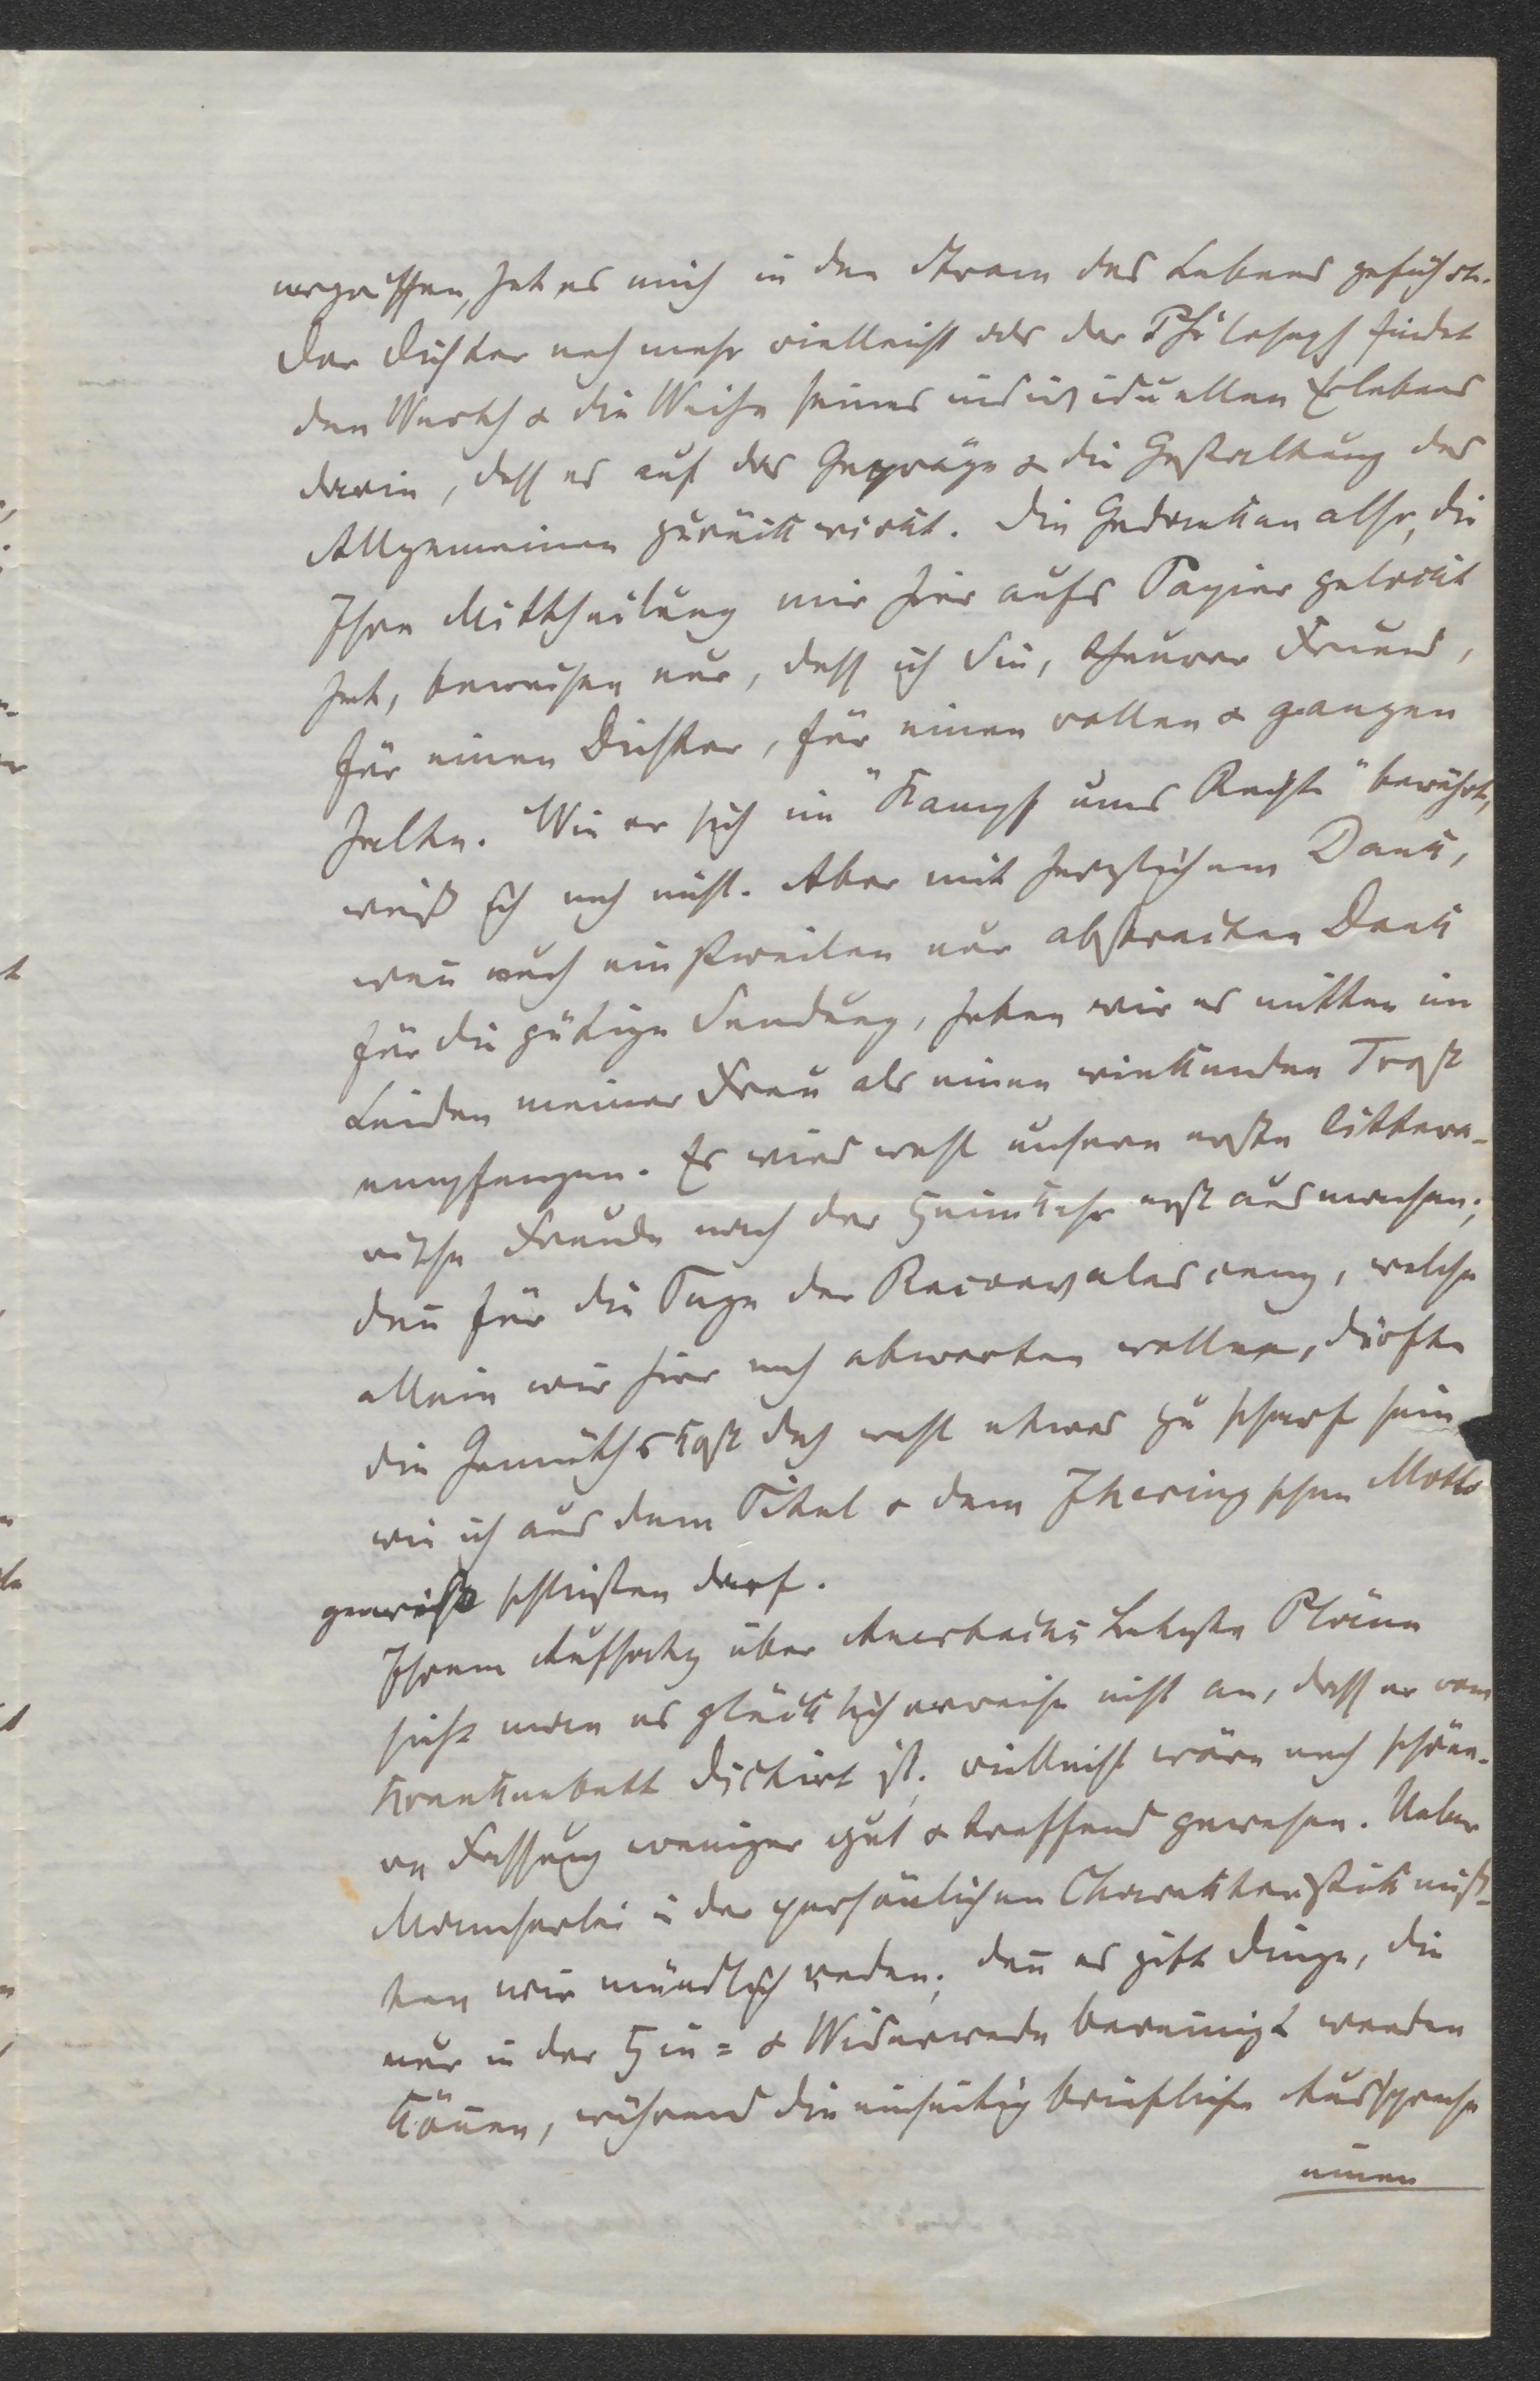 ergriffen, hat es mich in den Strom des Lebens geführt.
Der Dichter noch mehr vielleicht als der Philosoph findet
den Werth & die Weihe seines individuellen Erlebens
darin, dass es auf das Gepräge & die Gestaltung des
Allgemeinen zurückwirkt. Die Gedanken also, die
Ihre Mittheilung mir hier aufs Papier gelockt
hat, beweisen nur, dass ich Sie, theurer Freund,
für einen Dichter, für einen vollen & ganzen
halte. Wie er sich im "Kampf ums Recht" bewährt,
weiß ich noch nicht. Aber mit herzlichem Dank,
wenn auch einstweilen nur abstracten Dank
für die gütige Sendung, haben wir es mitten im
Leiden meiner Frau als einen winkenden Trost
empfangen. Es wird wohl unsere erste littera-
rische Freude nach der Heimkehr erst ausmachen;
denn für die Tage der Reconvalescenz, welche
allein wir hier noch abwarten wollen, dürfte
die Gemüthskost doch wohl etwas zu scharf sein
wie ich aus dem Titel & dem Iheringschen Motto
gewiß schließen darf.
Ihrem Aufsatz über Auerbachs Letzte Pläne
sieht man es glücklicherweise nicht an, dass er vom
Krankenbett dictirt ist; vielleicht wäre nach schöne-
re Fassung weniger gut & treffend gewesen. Ueber
Mancherlei in der persönlichen Charakteristik müß-
ten wir mündlich reden; denn es gibt Dinge, die
nur in der Hin= & Widerrede bereinigt werden
können, während die einseitig briefliche Aussprache
einen